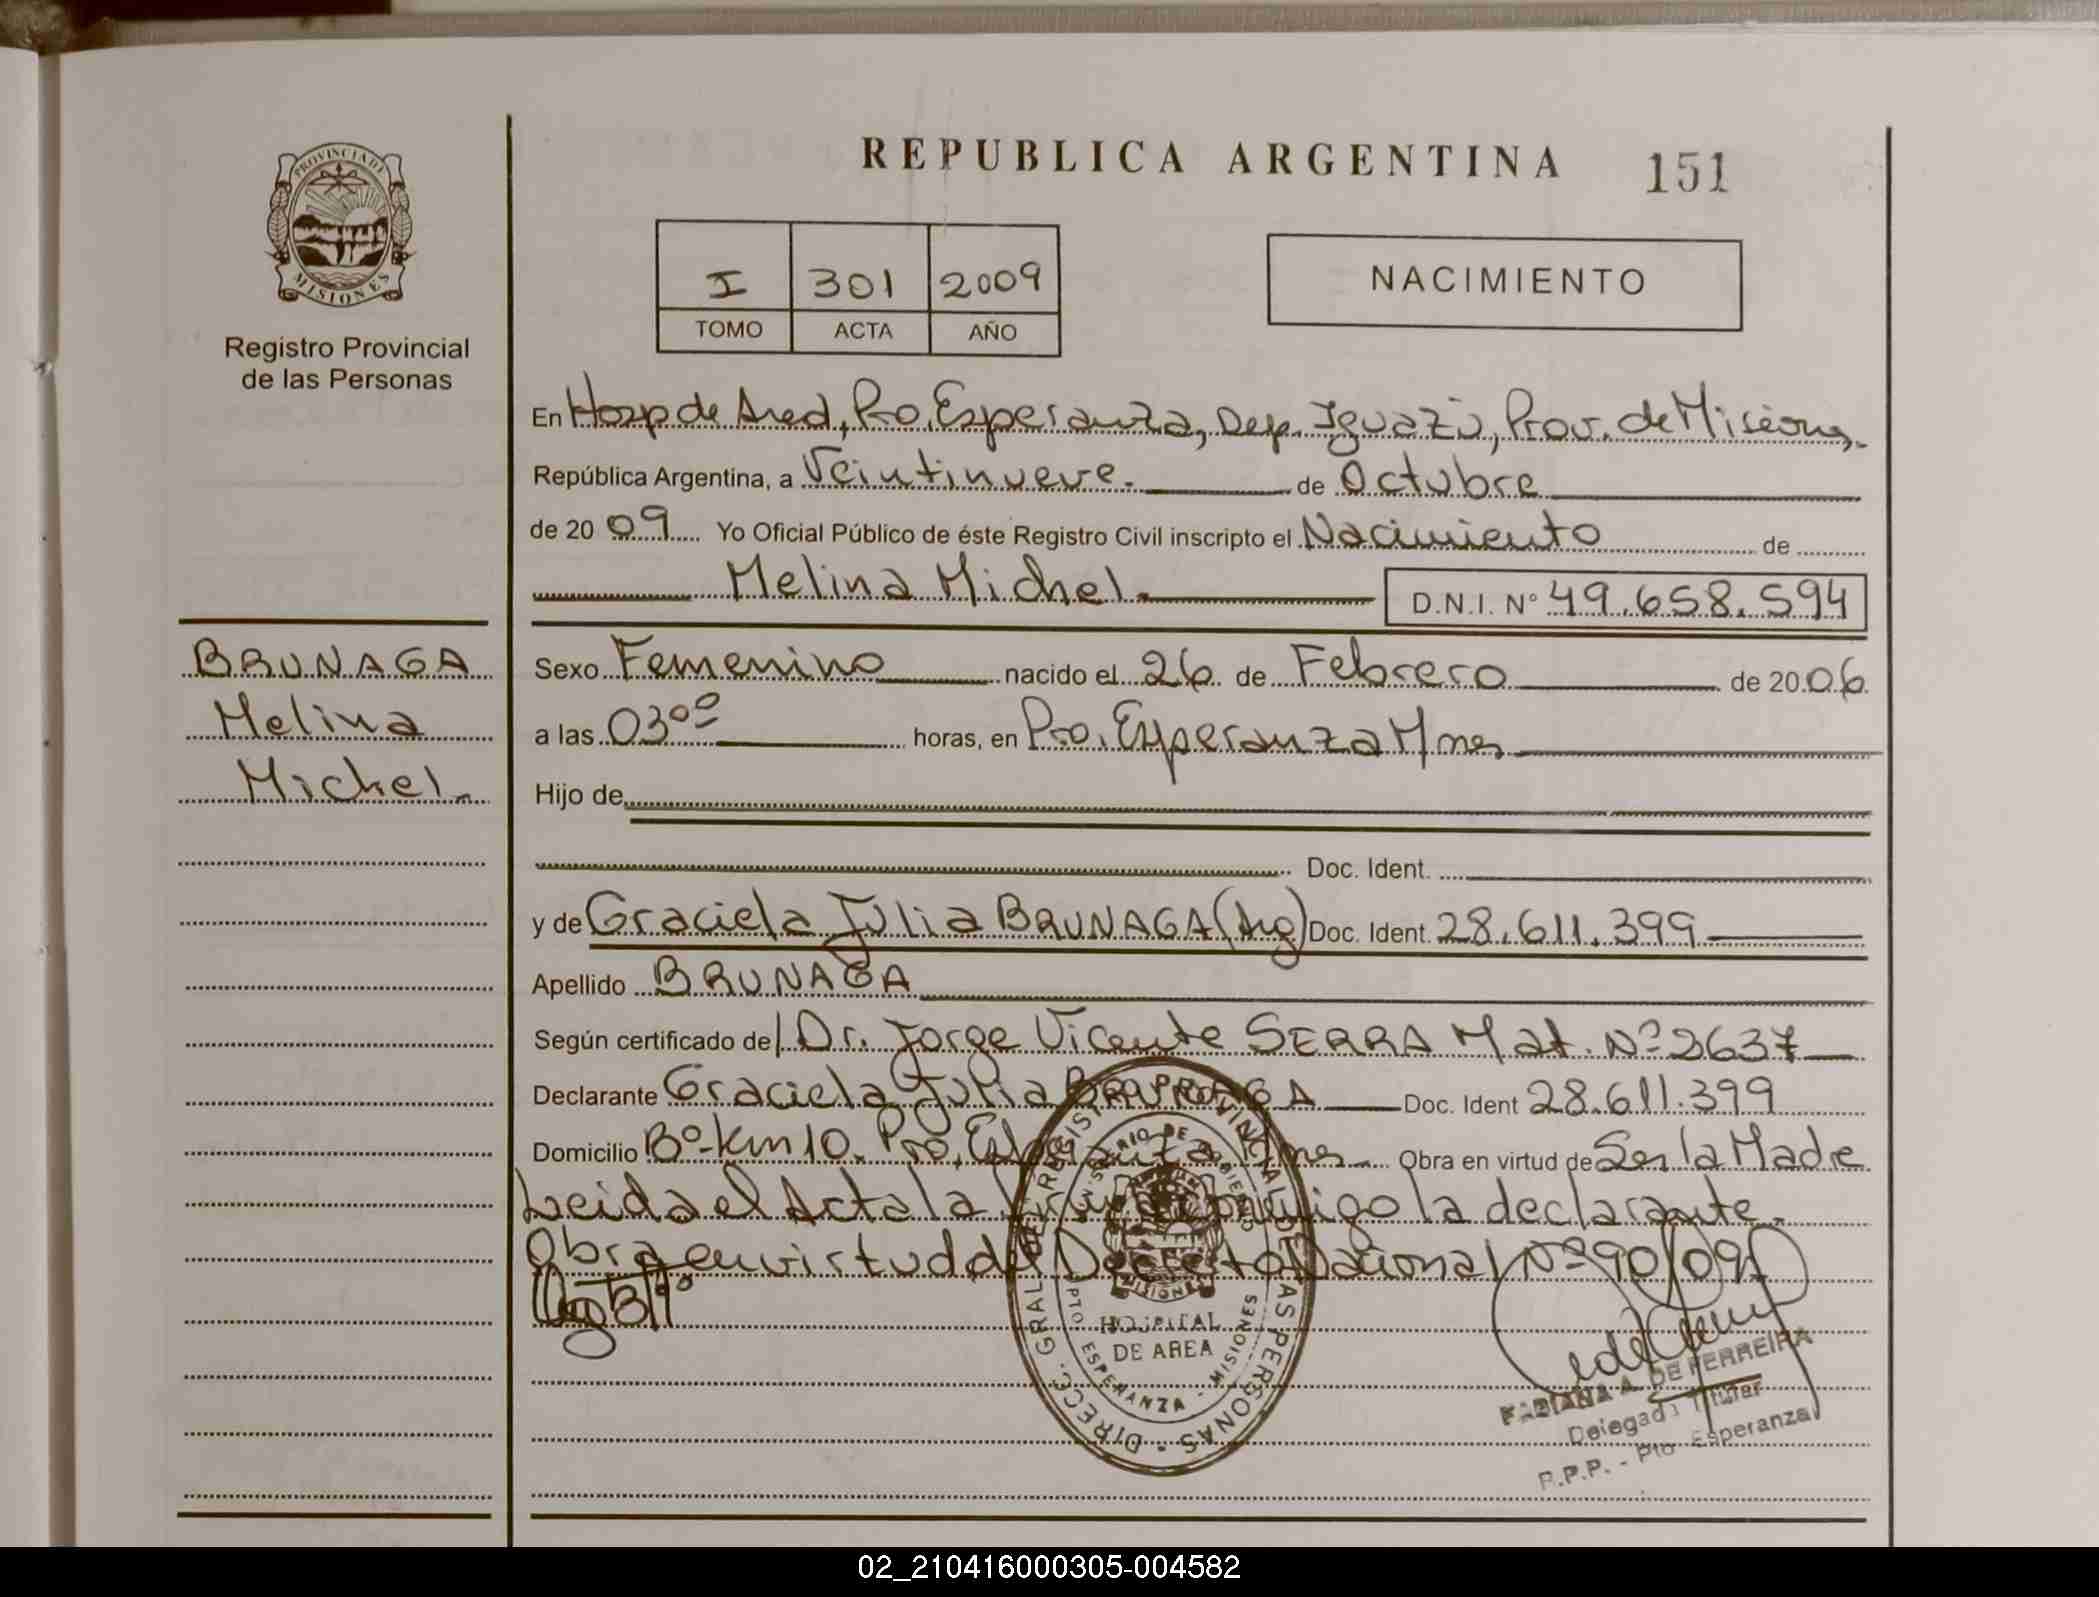 PROVINCIA DE
MISIONES
Registro Provincial
de las Personas
BRUNAGA
Melina
Michel.
REPUBLICA ARGENTINA 151
I 301 2009
TOMO ACTA AÑO
NACIMIENTO
En Hosp de Area, Pto. Esperanza, Dep. Iguazú, Prov. de Misiones.
República Argentina, a Veintinueve. de Octubre
de 20 09 Yo Oficial Público de éste Registro Civil inscripto el Nacimiento de
Melina Michel. D.N.I. N° 49.658.594
Sexo Femenino nacido el 26 de Febrero de 20 06
a las 03ºº horas, en Pto. Esperanza Mnes
Hijo de
Doc. Ident.
y de Graciela Julia BRUNAGA (Arg) Doc. Ident. 28.611.399
Apellido BRUNAGA
Según certificado del Dr. Jorge Vicente SERRA Mat. Nº 2637
Declarante Graciela Julia BRUNAGA Doc. Ident 28.611.399
Domicilio Bº-km 10. Pto. Esperanza Mnes Obra en virtud de Ser la Madre
Leida el Acta la firma conmigo la declarante.
Obra en virtud del Decreto Nacional Nº 90/09
DIRECC. GRAL. DEL REGISTRO PROVINCIAL DE LAS PERSONAS
MISIONES
HOSPITAL
DE AREA
PTO ESPERANZA - MISIONES
FABIANA A. DE FERREIRA
Delegada Titular
R.P.P. - Pto Esperanza
02_210416000305-004582